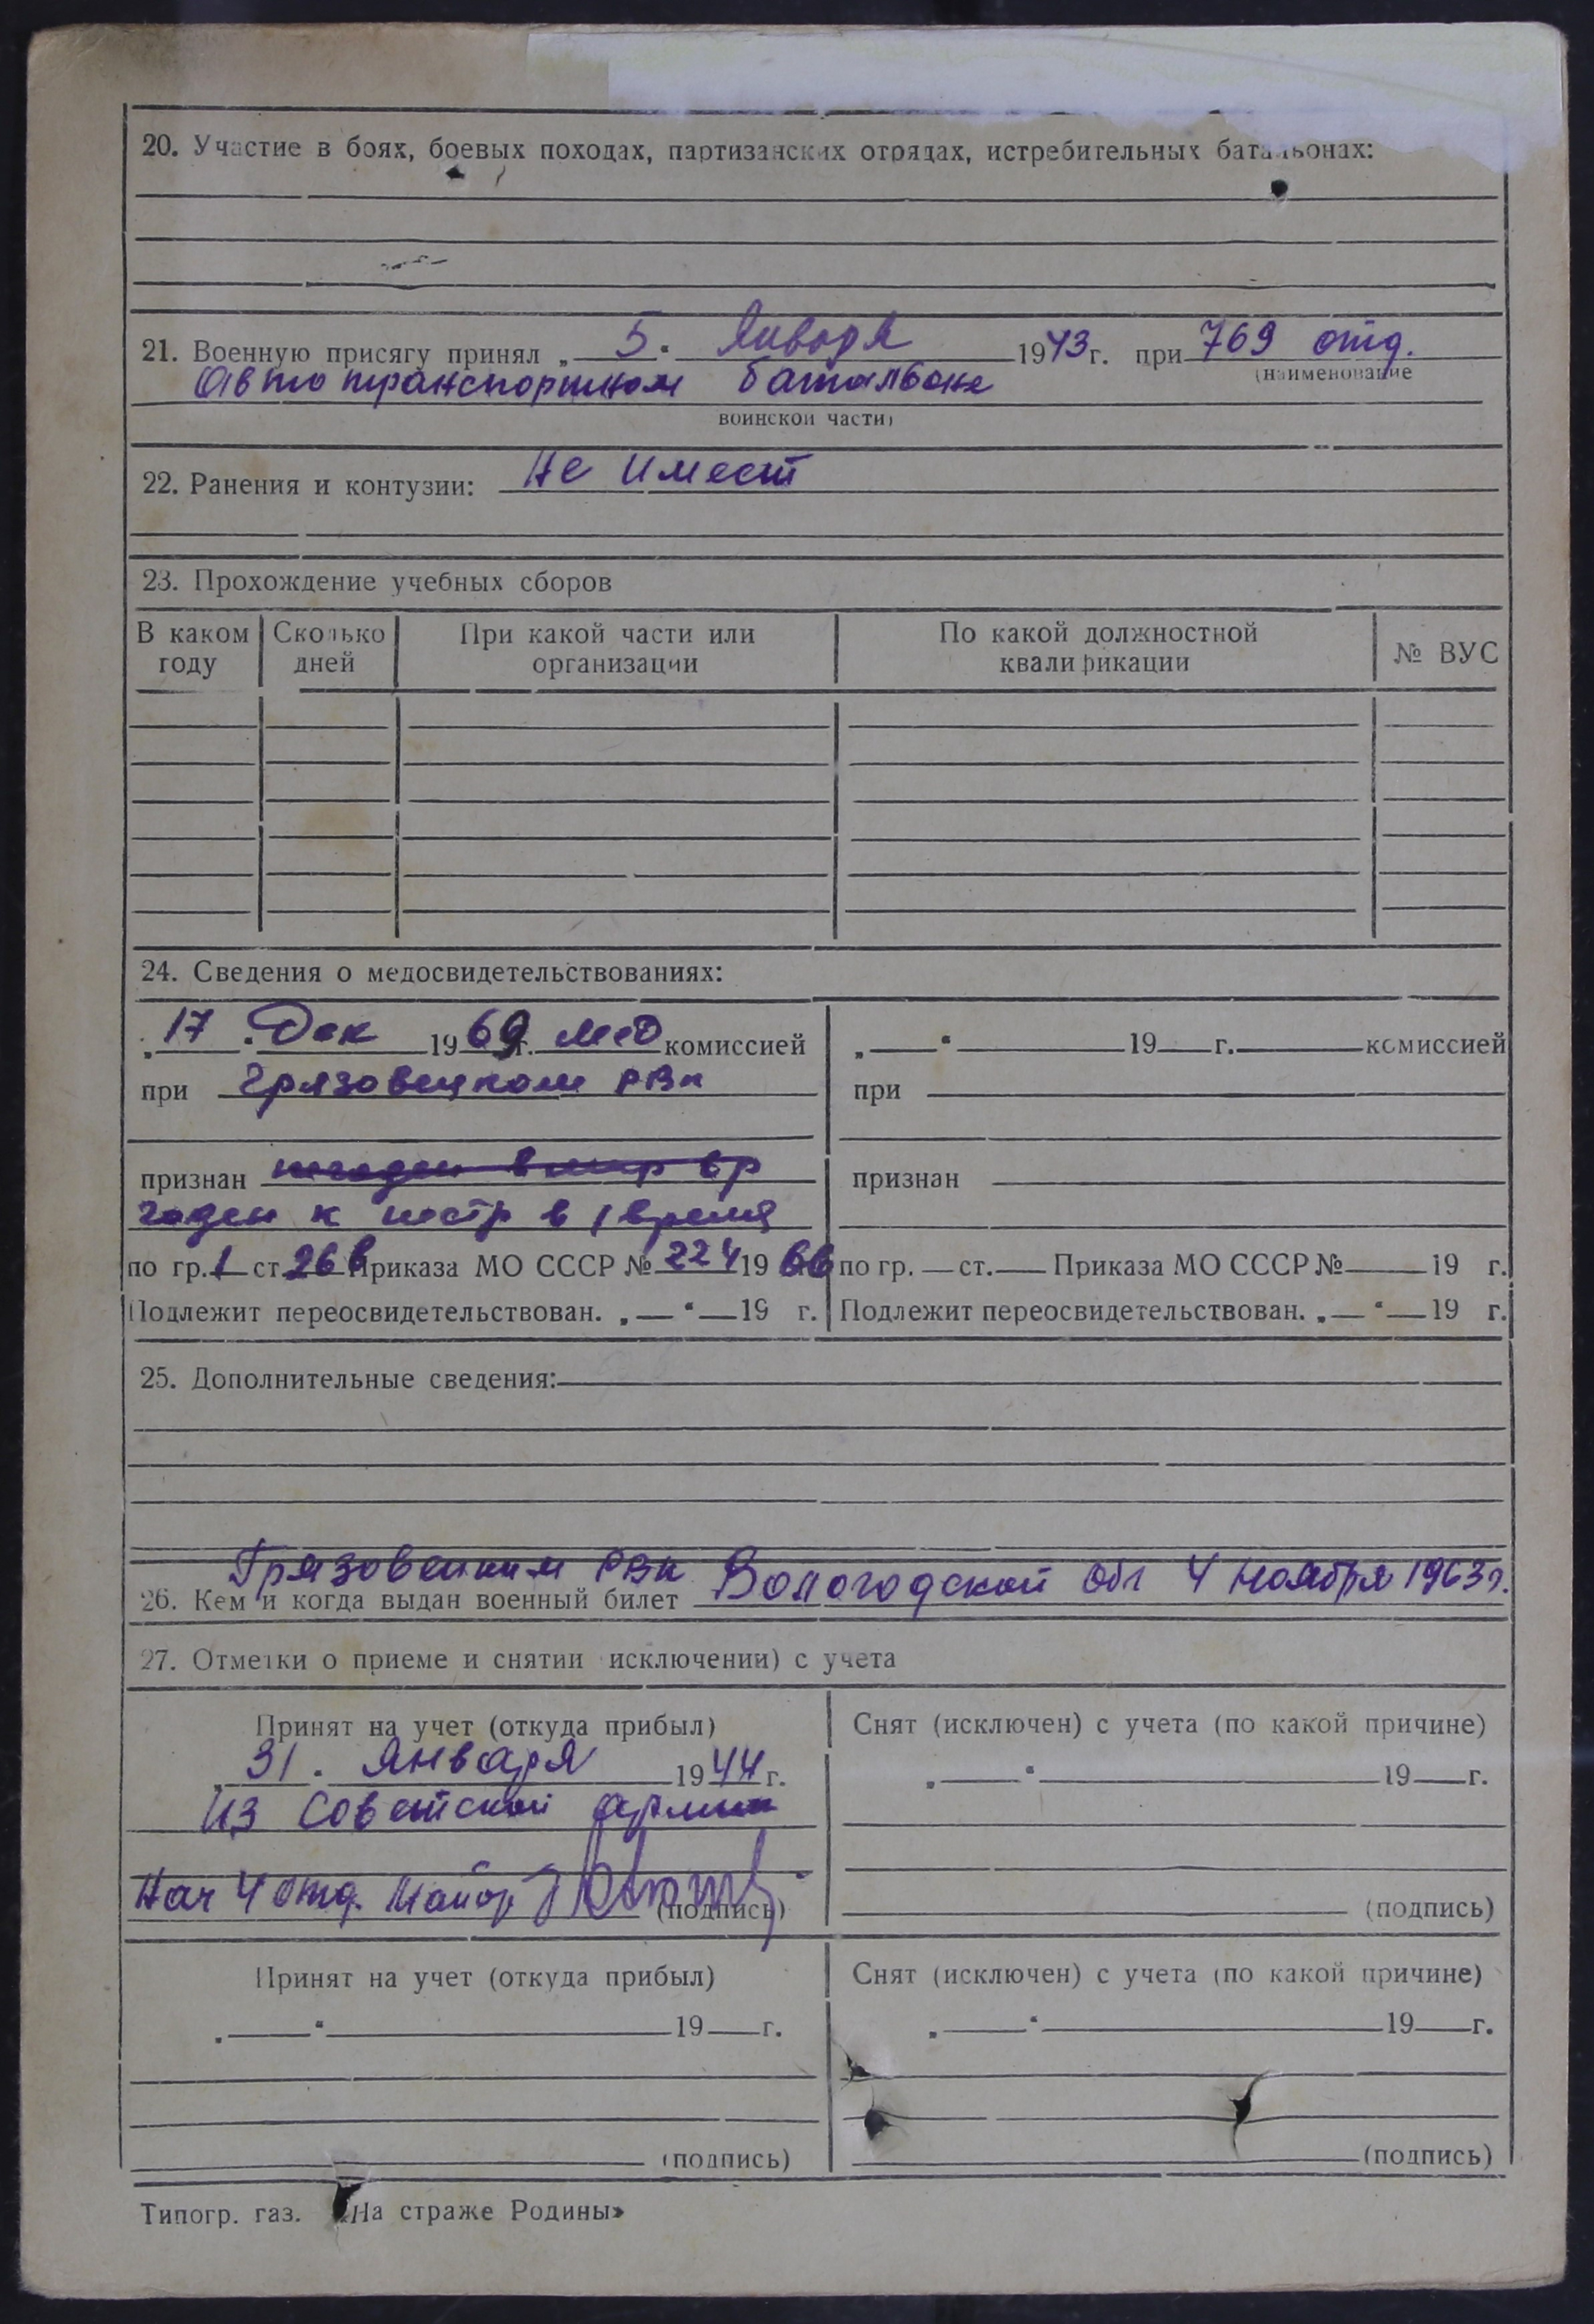 20. Участие в боях, боевых походах, партизанских отрядах, истребительных батальонах:
21. Военную присягу принял „ 5 “ Января 1943 г. при 769 отд.
(наименование
Автотранспортном батальоне
воинской части)
22. Ранения и контузии: Не имеет
23. Прохождение учебных сборов
В каком году | Сколько дней | При какой части или организации | По какой должностной квалификации | № ВУС
24. Сведения о медосвидетельствованиях:
„ 17 “ Дек 1969 г. мед комиссией
при Грязовецком РВК
признан негоден в мир вр
годен к нестр в 1 время
по гр. 1 ст. 26 в Приказа МО СССР № 224 19 66
Подлежит переосвидетельствован. „ “ 19 г.
„ “ 19 г. комиссией
при
признан
по гр. ст. Приказа МО СССР № 19 г.
Подлежит переосвидетельствован. „ “ 19 г.
25. Дополнительные сведения:
Грязовецким РВК
26. Кем и когда выдан военный билет Вологодской обл 4 Ноября 1963 г.
27. Отметки о приеме и снятии исключении) с учета
Принят на учет (откуда прибыл)
„ 31 “ Января 1944 г.
из Советской армии
Нач 4 отд. Майор
(подпись)
Снят (исключен) с учета (по какой причине)
„ “ 19 г.
(подпись)
Принят на учет (откуда прибыл)
„ “ 19 г.
(подпись)
Снят (исключен) с учета (по какой причине)
„ “ 19 г.
(подпись)
Типогр. газ. «На страже Родины»